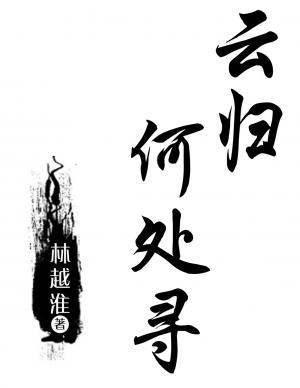 云归
何处寻
林越淮著